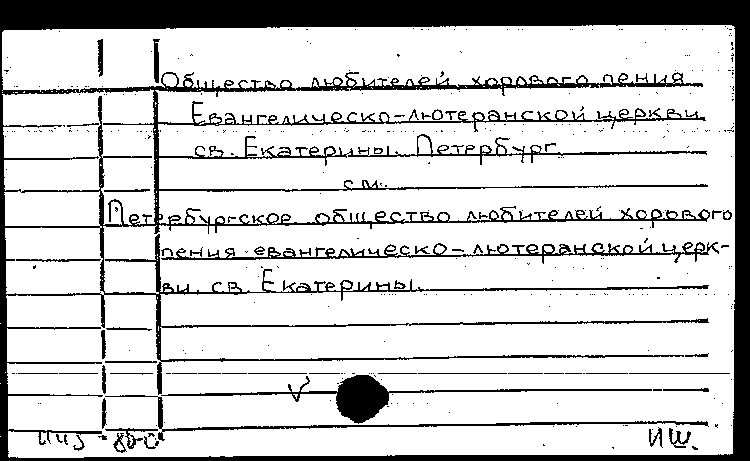 Общество любителей хорового пения
Евангелическо-лютеранской церкви
св. Екатерины. Петербург.
см.
Петербургское общество любителей хорового
пения евангелическо-лютеранской церк-
ви св. Екатерины.
ИШ.